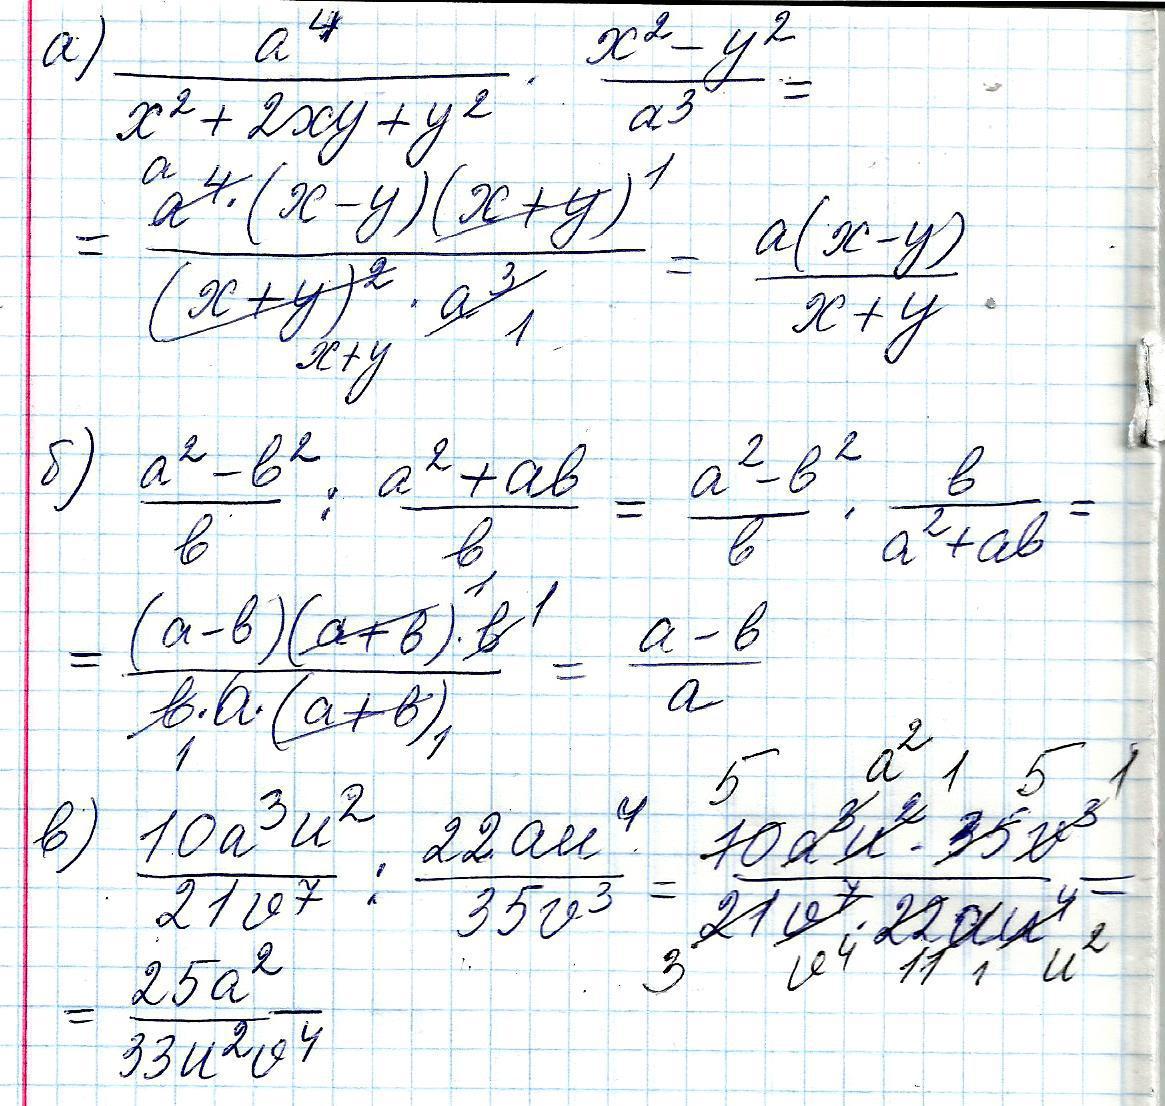 а) a⁴/(x² + 2xy + y²) · (x² − y²)/a³ =
= (a⁴ · (x − y)(x + y))/((x + y)² · a³) = a(x − y)/(x + y) .
a 1
x + y 1
б) (a² − b²)/b : (a² + ab)/b = (a² − b²)/b · b/(a² + ab) =
= ((a − b)(a + b) · b)/(b · a · (a + b)) = (a − b)/a
1 1
1 1
5 a² 1 5 1
в) 10a³u²/21v⁷ : 22au⁴/35v³ = (10a³u² · 35v³)/(21v⁷ · 22au⁴) =
3 v⁴ 11 1 u²
= 25a²/33u²v⁴